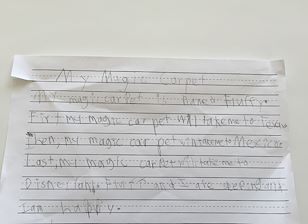 My Magic Carpet
My magic carpet is named Fluffy.
First my magic car pet will take me to Texas
Then, my magic car pet will take me to Mexico.
Last, my magic carpet will take me to
Disney land. Fluffy and I are
I am happy.